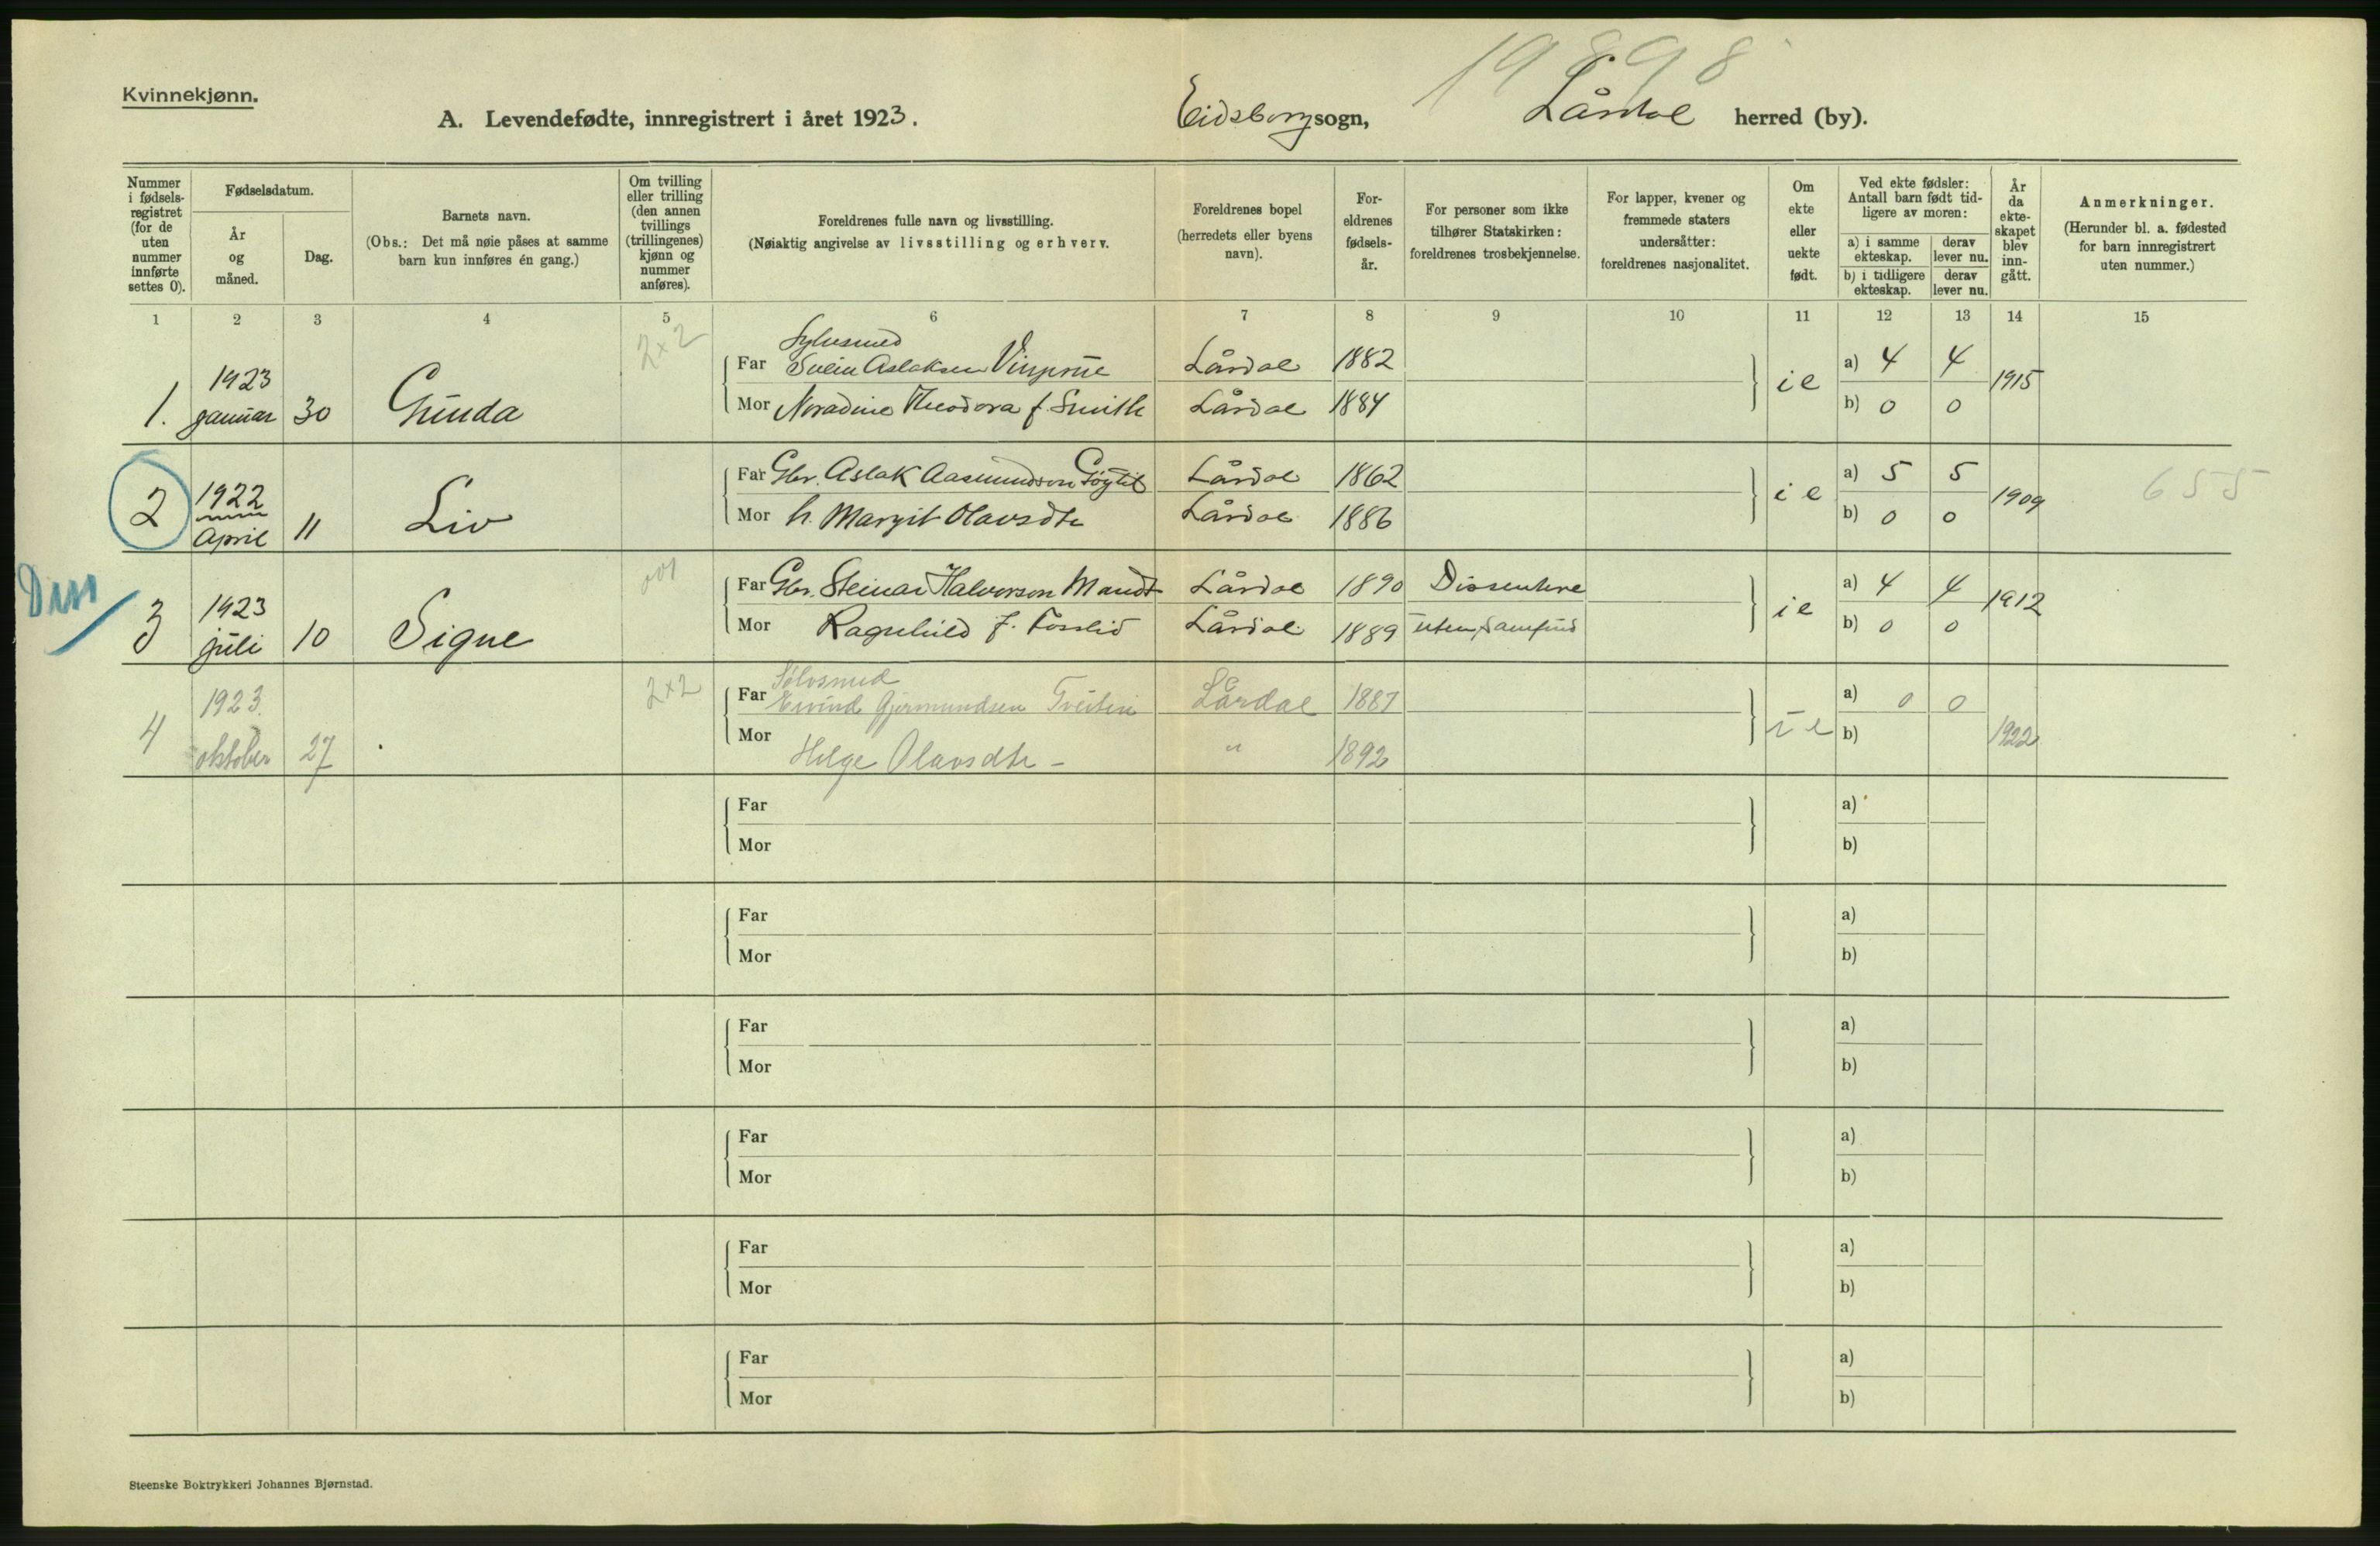 19898
Kvinnekjønn.
A. Levendefødte, innregistrert i året 1923.
Eidsborg sogn, Lårdal herred (by).
Nummer i fødselsregistret (for de uten nummer innførte settes 0).
Fødselsdatum.
År og måned.
Dag.
Barnets navn.
(Obs.: Det må nøie påses at samme barn kun innføres én gang.)
Om tvilling eller trilling (den annen tvillings (trillingenes) kjønn og nummer anføres).
Foreldrenes fulle navn og livsstilling.
(Nøiaktig angivelse av livsstilling og erhverv.
Foreldrenes bopel (herredets eller byens navn).
Foreldrenes fødselsår.
For personer som ikke tilhører Statskirken: foreldrenes trosbekjennelse.
For lapper, kvener og fremmede staters undersåtter: foreldrenes nasjonalitet.
Om ekte eller uekte født.
Ved ekte fødsler: Antall barn født tidligere av moren:
a) i samme ekteskap. derav lever nu.
b) i tidligere ekteskap. derav lever nu.
År da ekteskapet blev inngått.
Anmerkninger.
(Herunder bl. a. fødested for barn innregistrert uten nummer.)
1 2 3 4 5 6 7 8 9 10 11 12 13 14 15
1. 1923 januar 30 Gunda 2×2
Far Sylvsmed Svein Aslaksen Vinjerue Lårdal 1882 ie a) 4 4 1915
Mor Noradine Theodora f. Smith Lårdal 1884 b) 0 0
2 1922 April 11 Liv
Far Gbr. Aslak Aasmundson Gøytil Lårdal 1862 ie a) 5 5 1909 655
Mor h. Margit Olavsdtr Lårdal 1886 b) 0 0
Diss
3 1923 juli 10 Signe 001
Far Gbr. Steinar Halvorson Mandt Lårdal 1890 Dissentere ie a) 4 4 1912
Mor Ragnhild f. Fosslid Lårdal 1889 uten samfund b) 0 0
4 1923 oktober 27 2×2
Far Sølvsmed Eivind Gjermundsen Tveiten Lårdal 1887 ie a) 0 0 1922
Mor Helge Olavsdtr - " 1892 b)
Far a)
Mor b)
Far a)
Mor b)
Far a)
Mor b)
Far a)
Mor b)
Far a)
Mor b)
Far a)
Mor b)
Steenske Boktrykkeri Johannes Bjørnstad.